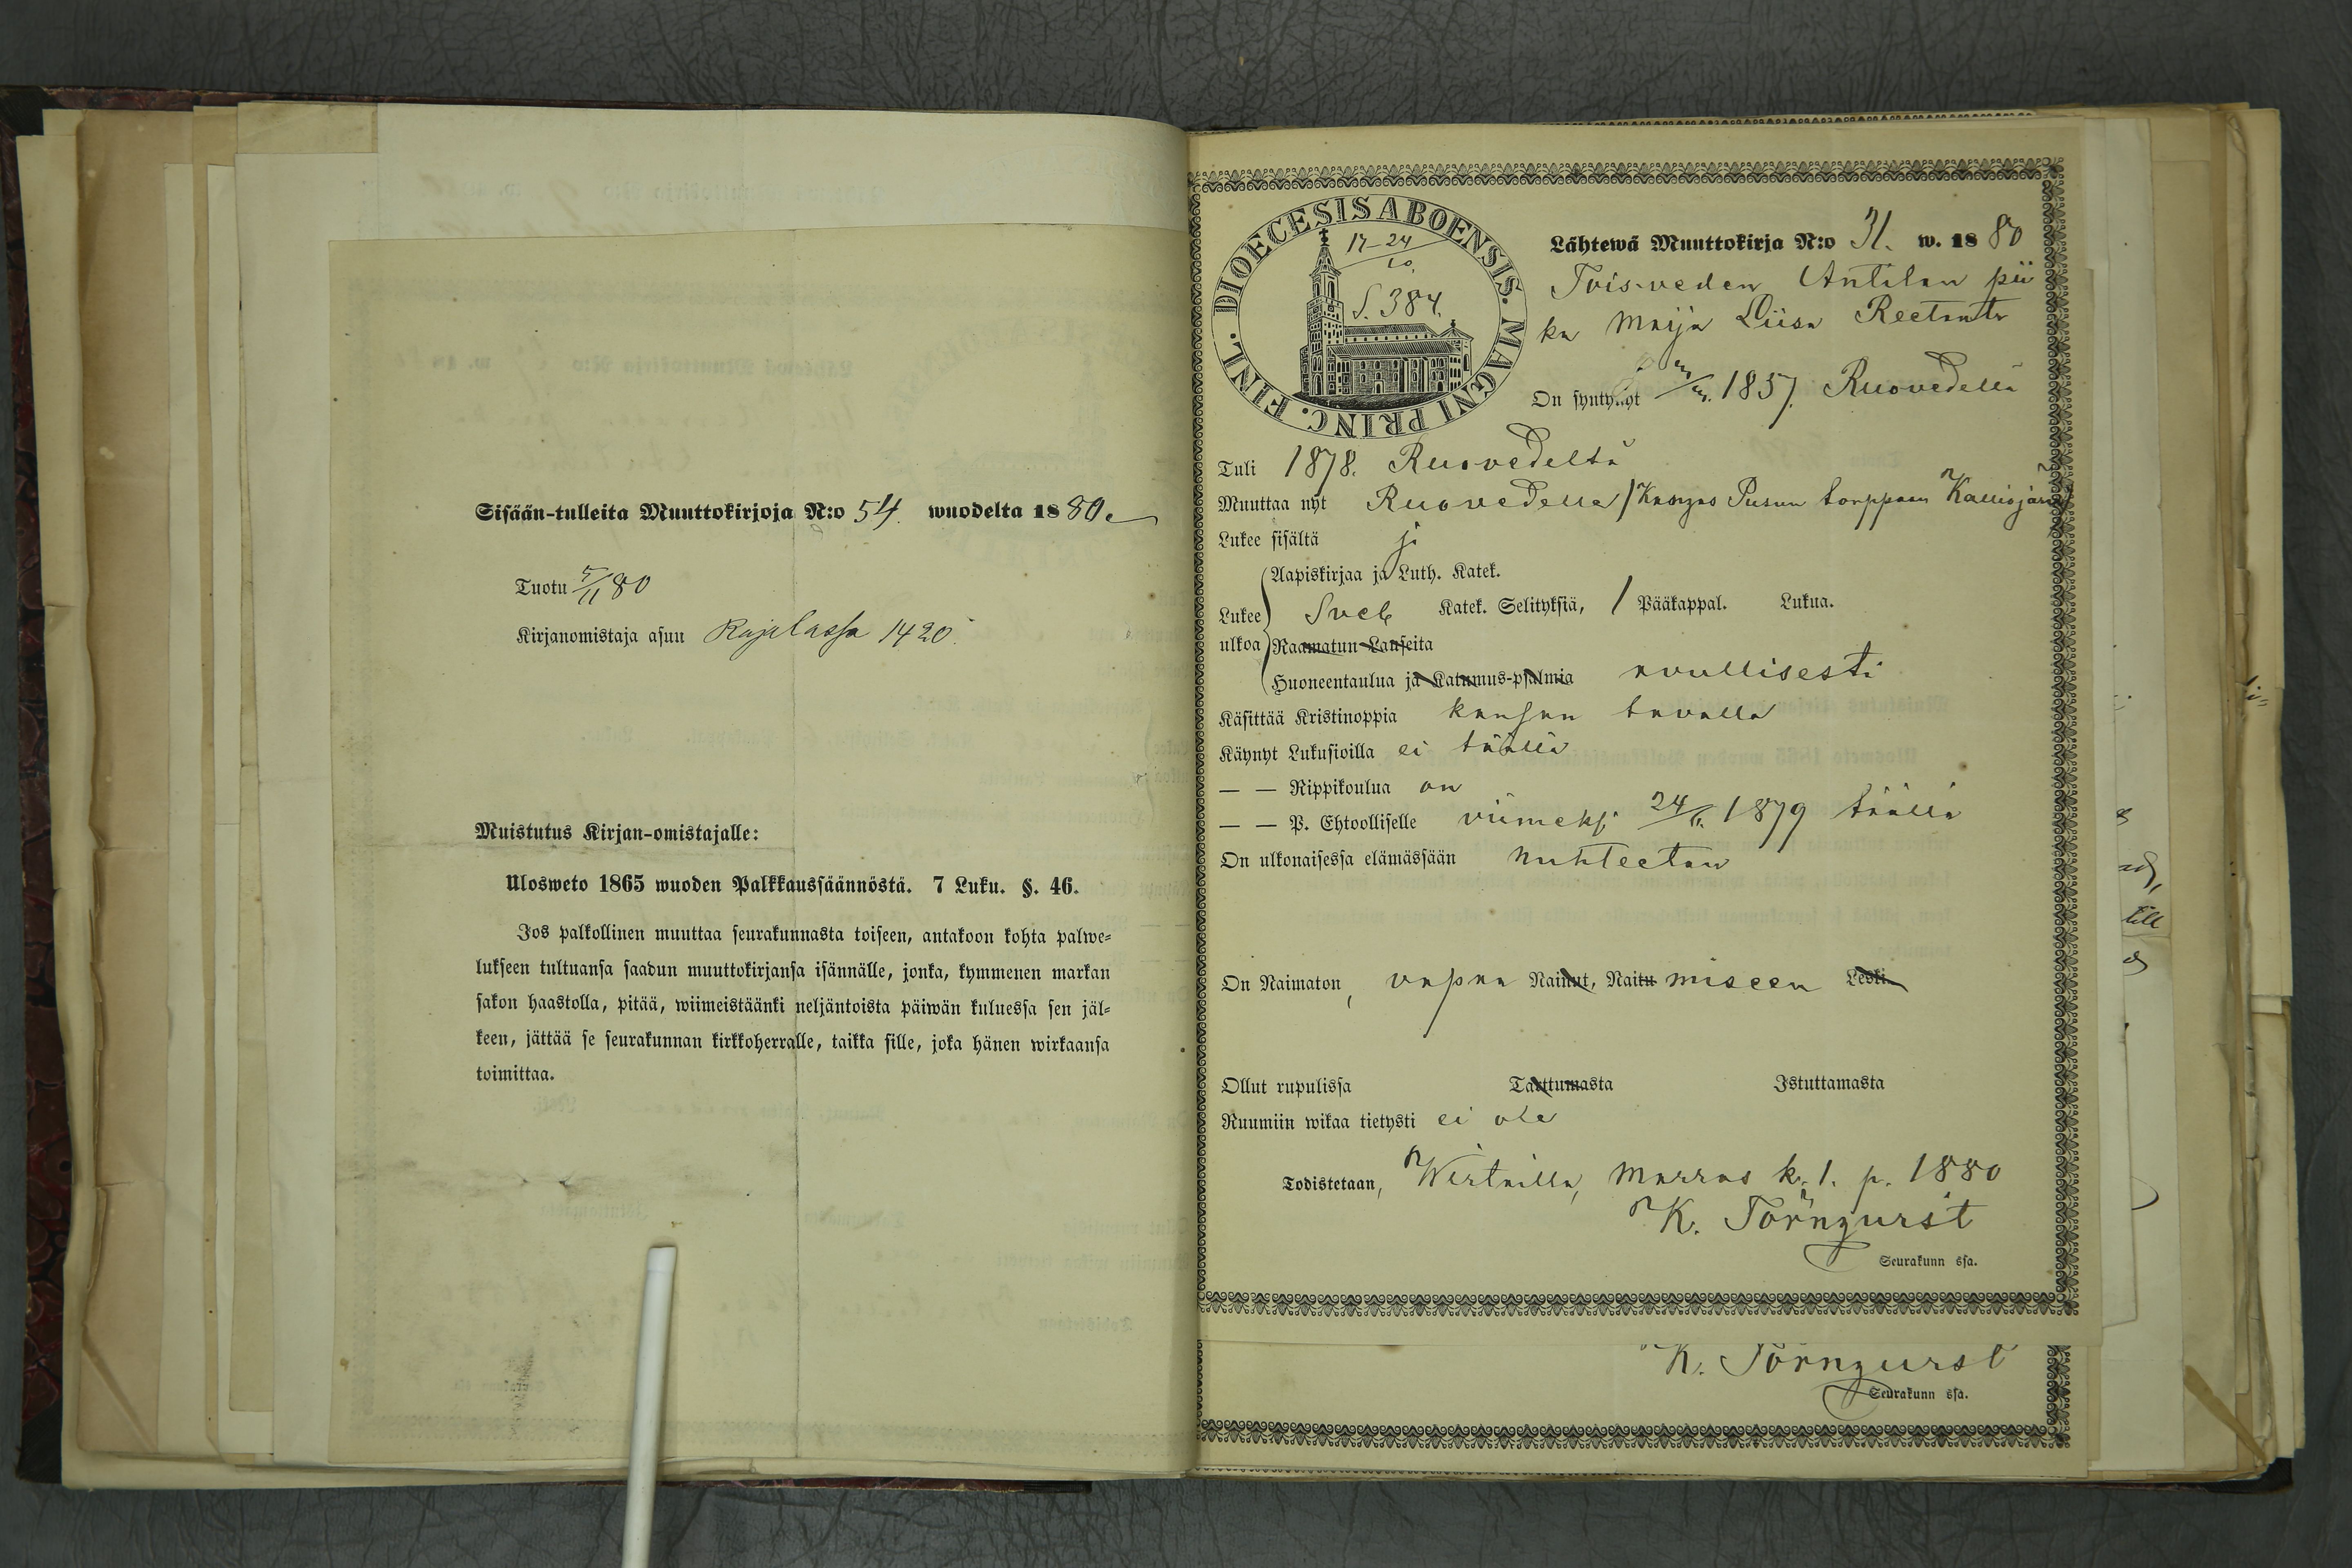 Sisään-tulleita Muuttokirjoja N:o 54. wuodelta 1880.
Tuotu 5/11 80
Kirjanomistaja asuu Rajalassa 1420.
Muistutus Kirjan-omistajalle:
Ulosweto 1865 wuoden Palkkaussäännöstä. 7 Luku. §. 46.
Jos palkollinen muuttaa seurakunnasta toiseen, antakoon kohta palwe-
lukseen tultuansa saadun muuttokirjansa isännälle, jonka, kymmenen markan
sakon haastolla, pitää, wiimeistäänki neljäntoista päiwän kuluessa sen jäl-
keen, jättää se seurakunnan kirkkoherralle, taikka sille, joka hänen wirkaansa
toimittaa.
DIOECESIS ABOENSIS. MAGNI PRINC. FINL.
17-24
10.
S. 384.
Lähtewä Muuttokirja N:o 31. w. 1880
Toisveden Antilan pii
ka Maija Liisa
On syntynyt 1857. Ruovedellä
Tuli 1878. Ruovedeltä
Muuttaa nyt Ruovedelle / Kangas torppaan Kallisjärvi
Lukee sisältä j.
Aapiskirjaa ja Luth. Katek.
Lukee Sveb Katek. Selityksiä, 1 Pääkappal. Lukua.
ulkoa Raamatun Lauseita
Huoneentaulua ja Katumus-psalmia
Käsittää Kristinoppia kansan tavalla
Käynyt Lukusioilla ei täällä
— — Rippikoulua on
— — P. Ehtoolliselle viimeksi 24/ 1879 täällä
On ulkonaisessa elämässään nuhteeton
On Naimaton, vapaa Nainut, Naitu miseen Leski
Ollut rupulissa Tarttumasta Istuttamasta
Ruumiin wikaa tietysti ei ole
Todistetaan, Wirtailla, Marras k. 1. p. 1880
K. Törnqvist
Seurakunn ssa.
K. Törnqvist
Seurakunn ssa.
till